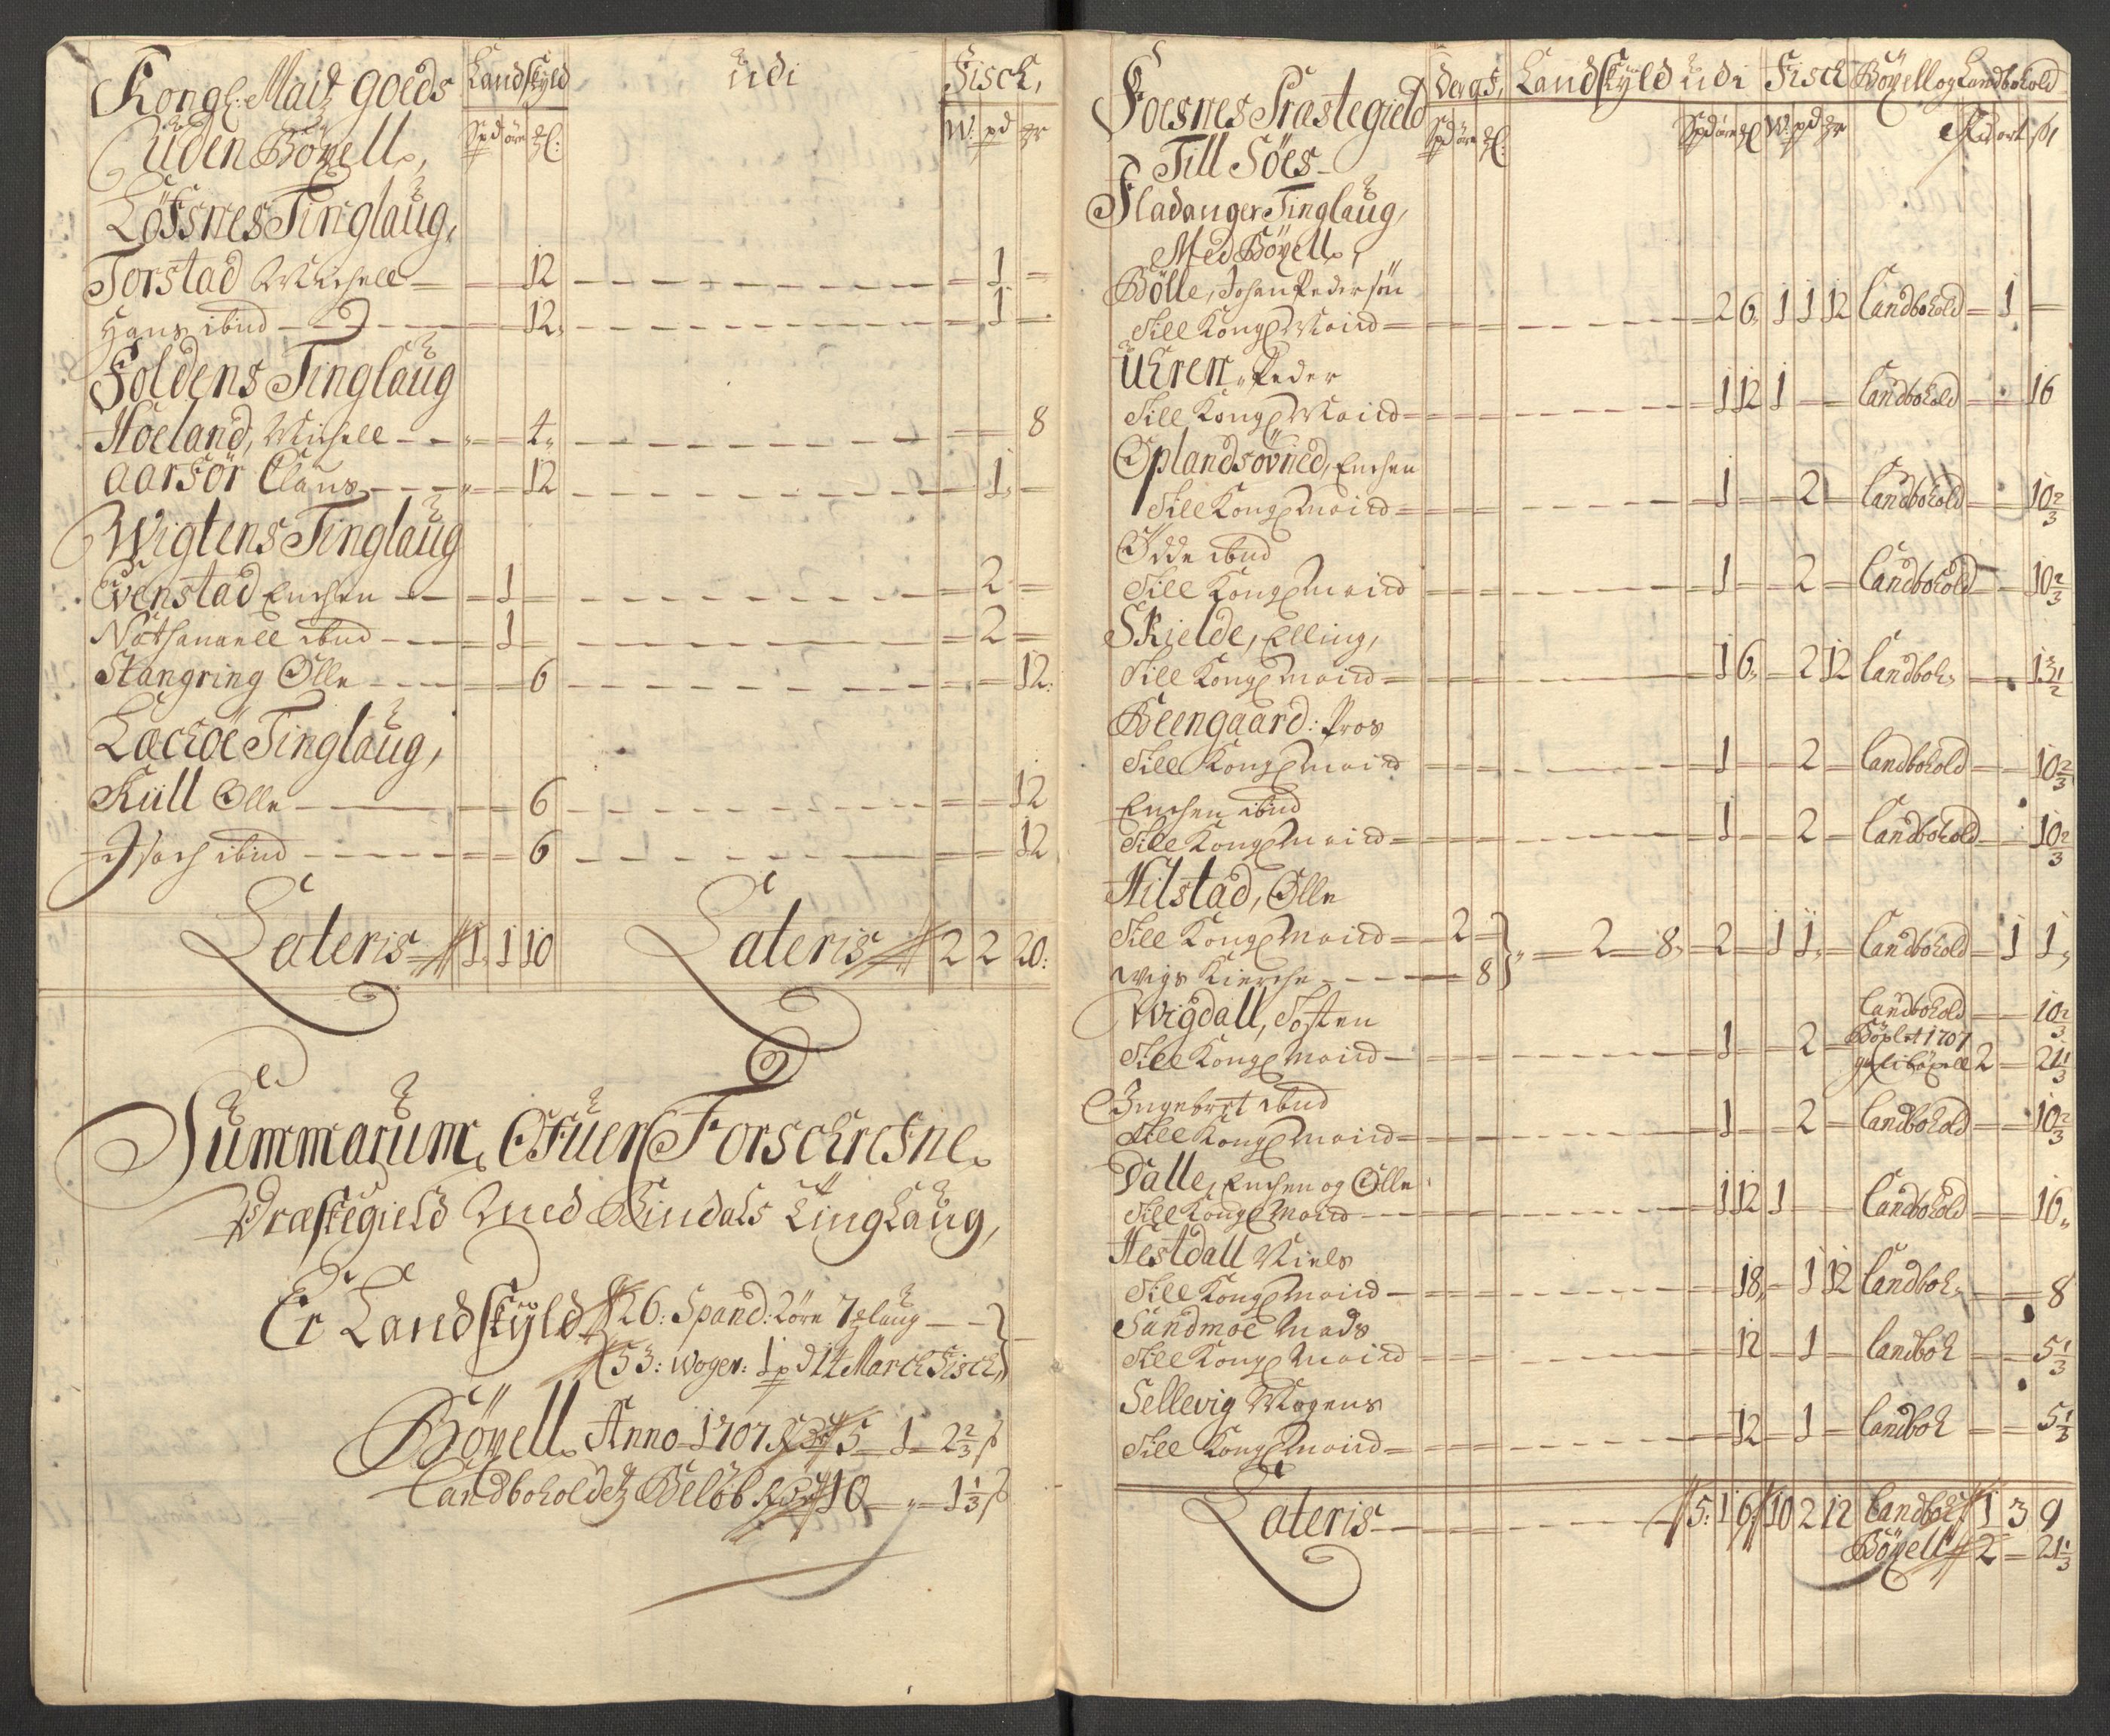 Kongl: Maitz goeds
Uden Böxell,
Landskyld
udi
Fisch,
Spd öre
W: pd
Löfsnes Tinglaug,
Torstad Michell 12 1
Hans ibid 12 1
Foldens Tinglaug
Hoeland, Michell 4 8
aarfor Claus 12 1
Wigtens Tinglaug
Evenstad Erichen 1 2
Nathanaell ibid 1 2
Stangring Olle 6 12
Læchöe Tinglaug,
Kull Olle 6 12
Isach ibid 6 12
Lateris 1 1 10 Lateris 2 2 20
Summarum, Ofuer Forschrefne
Præstegield Med Bindals Tinglaug,
Er Landskyld 26: Spand: 2 öre 7
53: woger: 1 pd 14 March Fisch
Böxell Anno 1707 5 1 2 2/3 ß
Landboholdtz Beløb 10 1 1/3 ß
Foesnes Prastegield
Till Söes
Landskyld udi Fisch Böxell og Landbohold
Spd öre W: pd ort ß
Fladanger Tinglaug,
Med Böxell,
Bölle, Johan Pedersön
Till Kongl Maitd 2 6 1 1 12 Landbohold 1
Uhren, Peder
Till Kongl Maitd 1 12 1 Landbohold 16
Oplandsövned, Erichen
Till Kongl Maitd 1 2 Landbohold 10 2/3
Odde ibid
Till Kongl Maitd 1 2 Landbohold 10 2/3
Skielde, Elling,
Till Kongl Maitd 1 6 2 12 Landboh 13 1/2
Beengaard: Pros
Till Kongl Maitd 1 2 Landbohold 10 2/3
Erichen ibid
Till Kongl Maitd 1 2 Landbohold 10 2/3
Hilstad, Olle
Till Kongl Maitd 2 2 8 2 1 1 Landbohold 1 1
Wigs Kierche 8
Wigdall, Tosten Landbohold 10 2/3
Till Kongl Maitd 1 2 Böxlet 1707
2 21 1/3
Ingebret ibid
Till Kongl Maitd 1 2 Landbohold 10 2/3
Dalle, Erichen og Olle
Till Kongl Maitd 1 12 1 Landbohold 16
Hestdall Niels
Till Kongl Maitd 18 1 12 Landboh 8
Sandmoe Mads
Till Kongl Maitd 12 1 Landboh 5 1/3
Sellevig Mogens
Till Kongl Maitd 12 1 Landboh 5 1/3
Lateris 5: 1 6 10 2 12 Landboh 1 3 9
Böxell 2 21 1/3